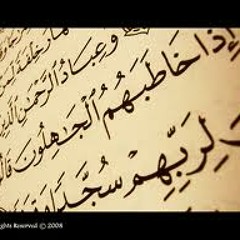 خِلْفَةً
وَعِبَادُ الرَّحْمَٰنِ الَّذِينَ
إِذَا خَاطَبَهُمُ الْجَاهِلُونَ قَالُ
لِرَبِّهِمْ سُجَّدًا
ights Reserved © 2008